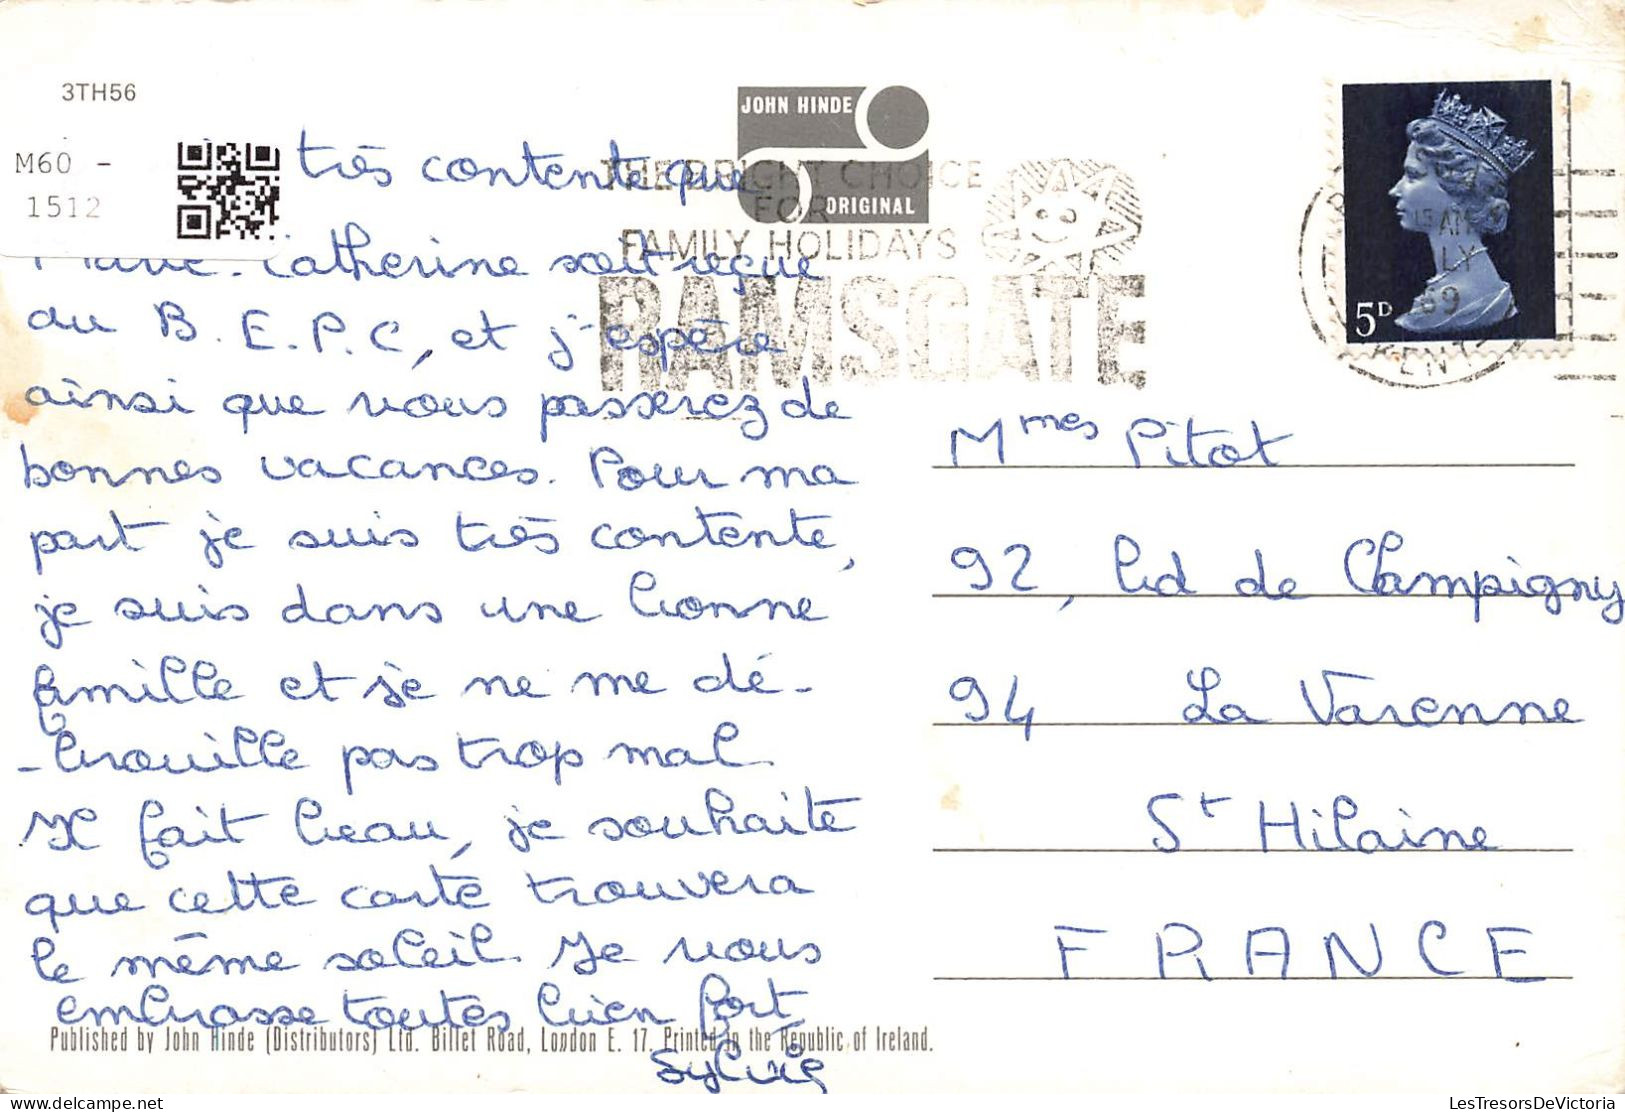 3TH56
M60 -
1512
JOHN HINDE
ORIGINAL
THE BRIGHT CHOICE
FOR
FAMILY HOLIDAYS
RAMSGATE
KENT
5D
très contente que
Marie-Catherine soit reçue
au B.E.P.C, et j'espère
ainsi que vous passerez de
bonnes vacances. Pour ma
part je suis très contente,
je suis dans une bonne
famille et je ne me dé-
-brouille pas trop mal.
Il fait beau, je souhaite
que cette carte trouvera
le même soleil. Je vous
embrasse toutes bien fort
Sylvie
Mmes Pitot
92, bd de Champigny
94 La Varenne
St Hilaine
FRANCE
Published by John Hinde (Distributors) Ltd. Billet Road, London E. 17. Printed in the Republic of Ireland.
LesTresorsDeVictoria